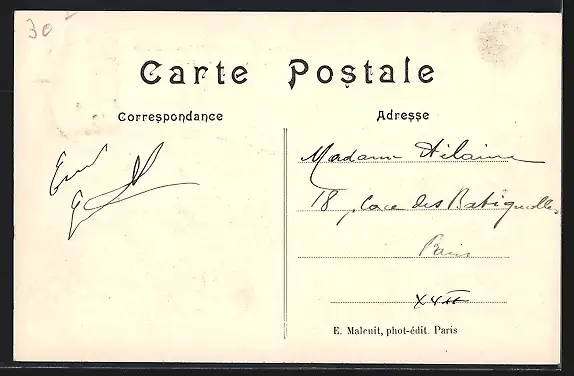 30
Carte Postale
Correspondance
Adresse
Madame Hélaine
18, place des Batignolles
Paris
E. Malcuit, phot-édit. Paris